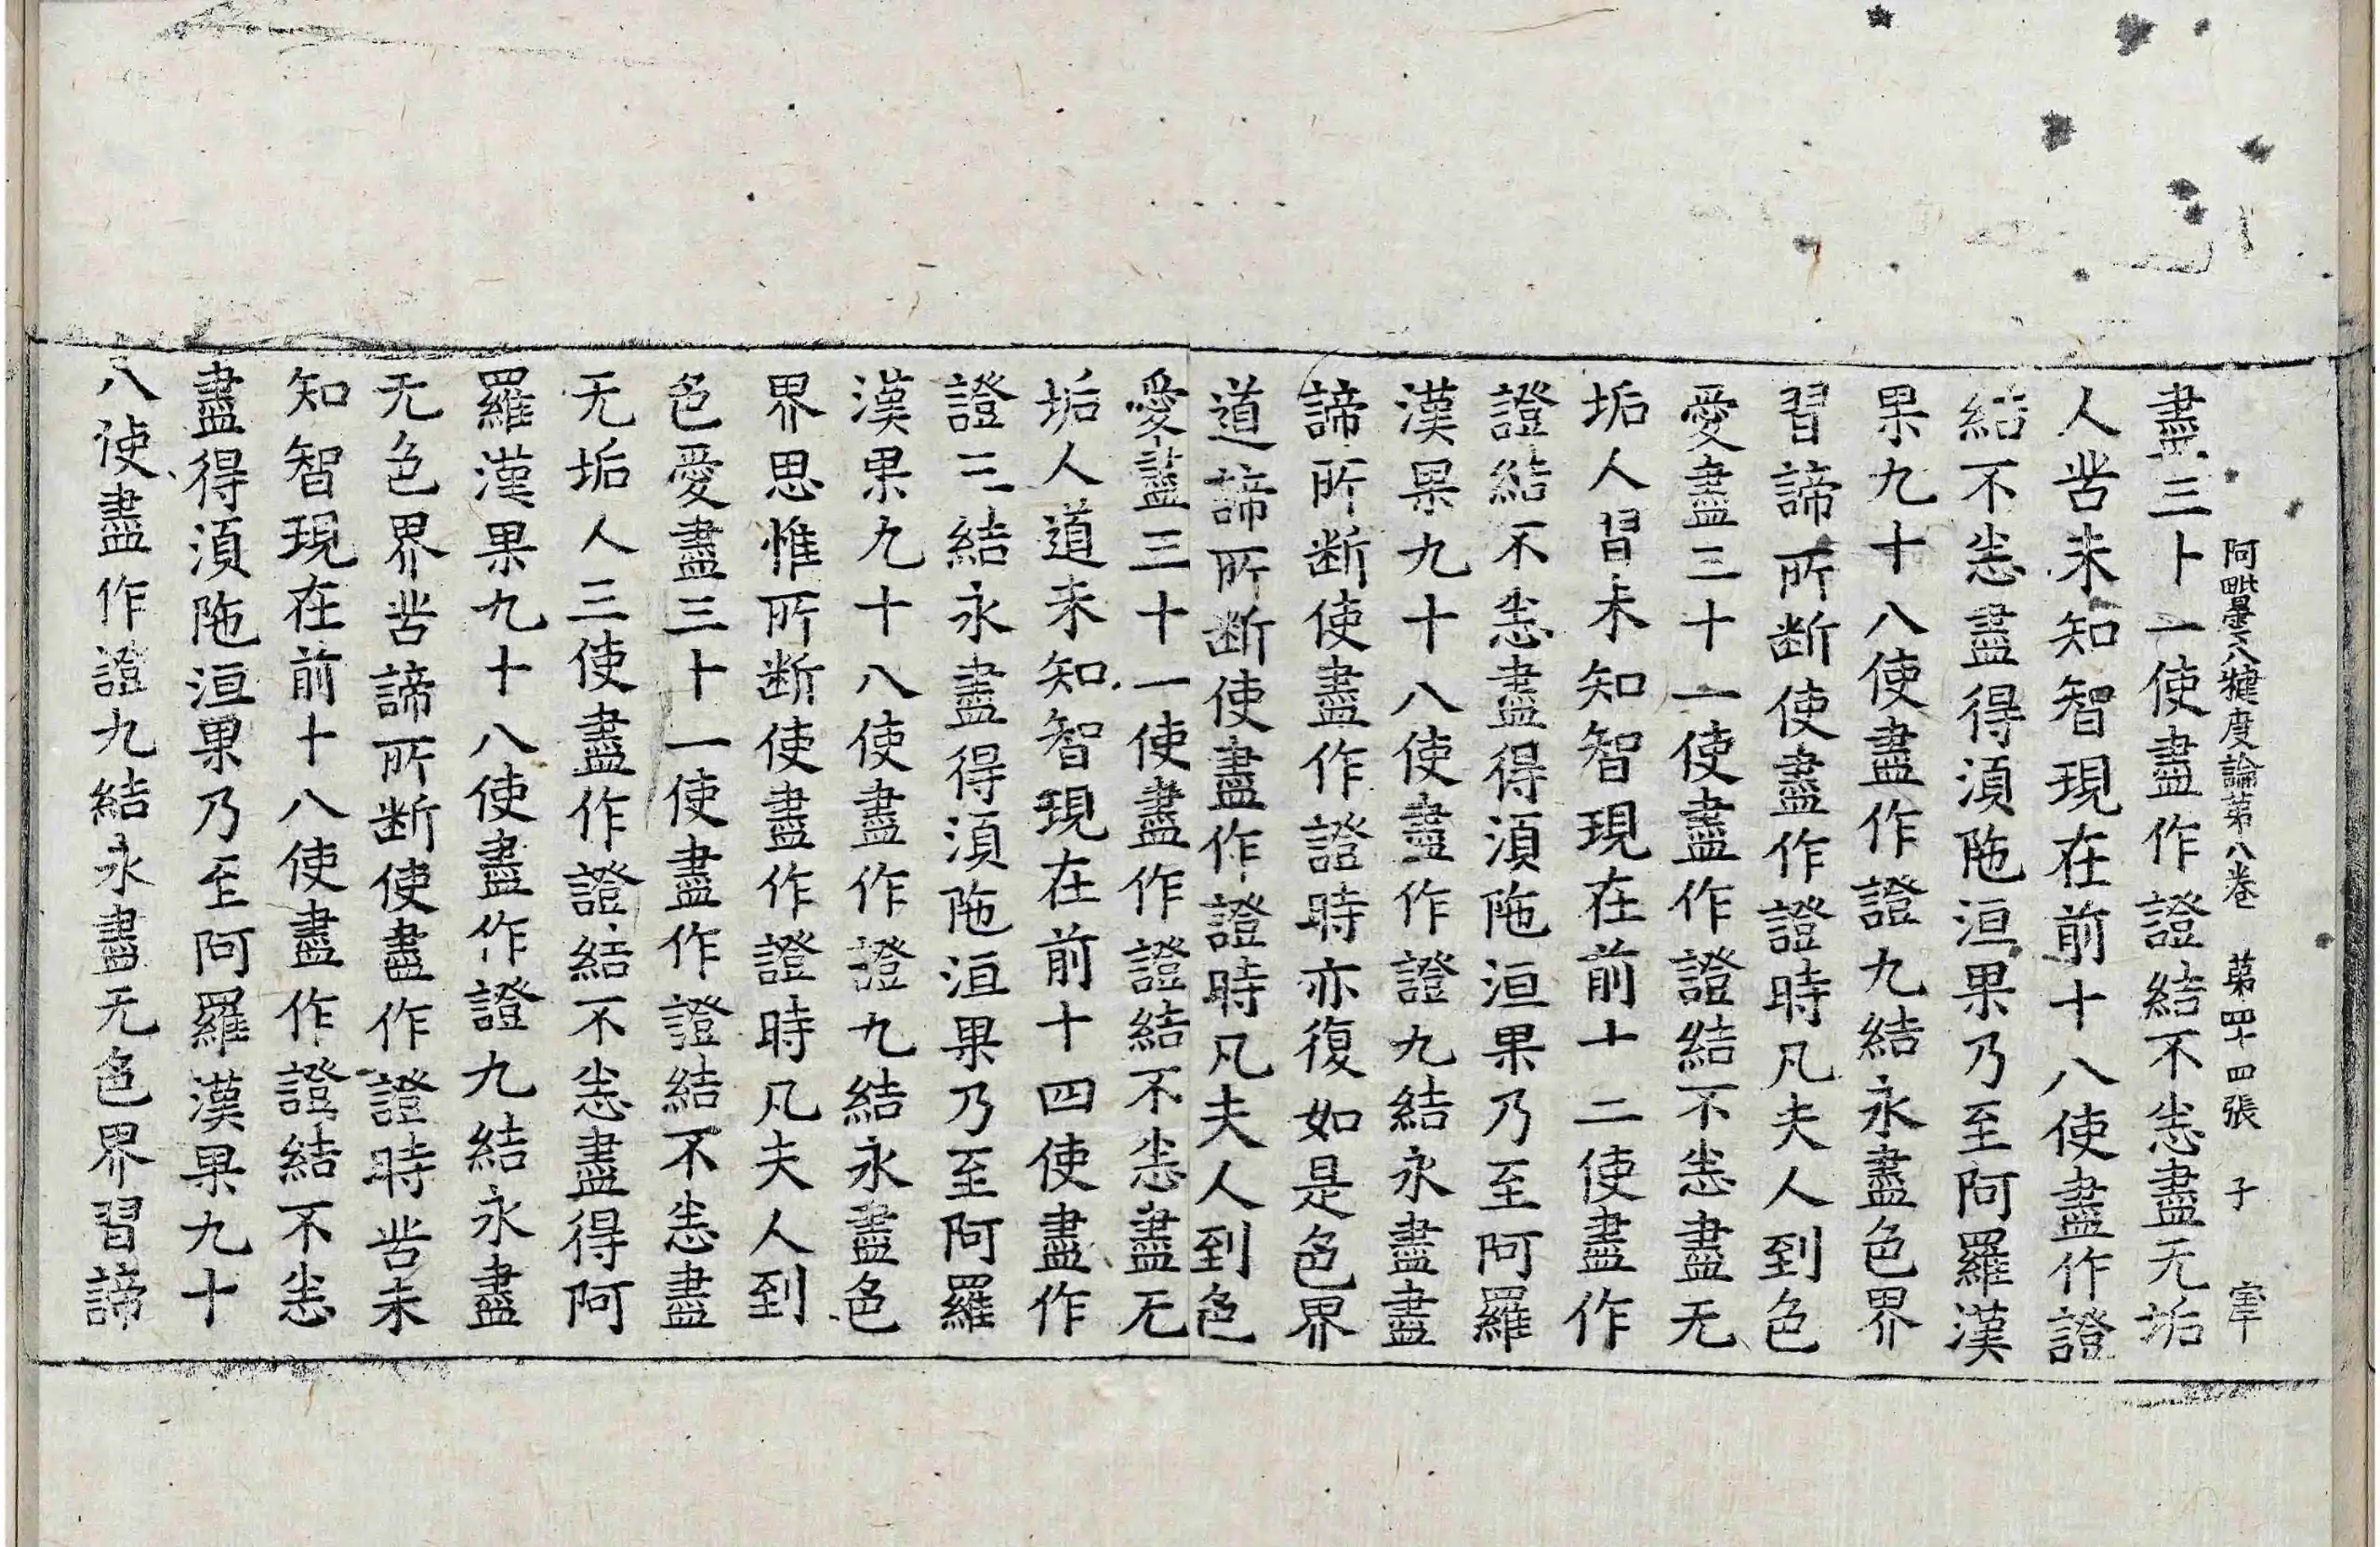 阿毗曇八犍度論第八卷　第四十四張　子　宰
盡三十一使盡作證結不恙盡无垢
人苦未知智現在前十八使盡作證
結不恙盡得湏陁洹果乃至阿羅漢
果九十八使盡作證九結永盡色界
習諦所断使盡作證時凡夫人到色
愛盡三十一使盡作證結不恙盡无
垢人習未知智現在前十二使盡作
證結不恙盡得湏陁洹果乃至阿羅
漢果九十八使盡作證九結永盡盡
諦所断使盡作證時亦復如是色界
道諦所断使盡作證時凡夫人到色
愛盡三十一使盡作證結不恙盡无
垢人道未知智現在前十四使盡作
證三結永盡得湏陁洹果乃至阿羅
漢果九十八使盡作證九結永盡色
界思惟所断使盡作證時凡夫人到
色愛盡三十一使盡作證結不恙盡
无垢人三使盡作證結不恙盡得阿
羅漢果九十八使盡作證九結永盡
无色界苦諦所断使盡作證時苦未
知智現在前十八使盡作證結不恙
盡得湏陁洹果乃至阿羅漢果九十
八使盡作證九結永盡无色界習諦